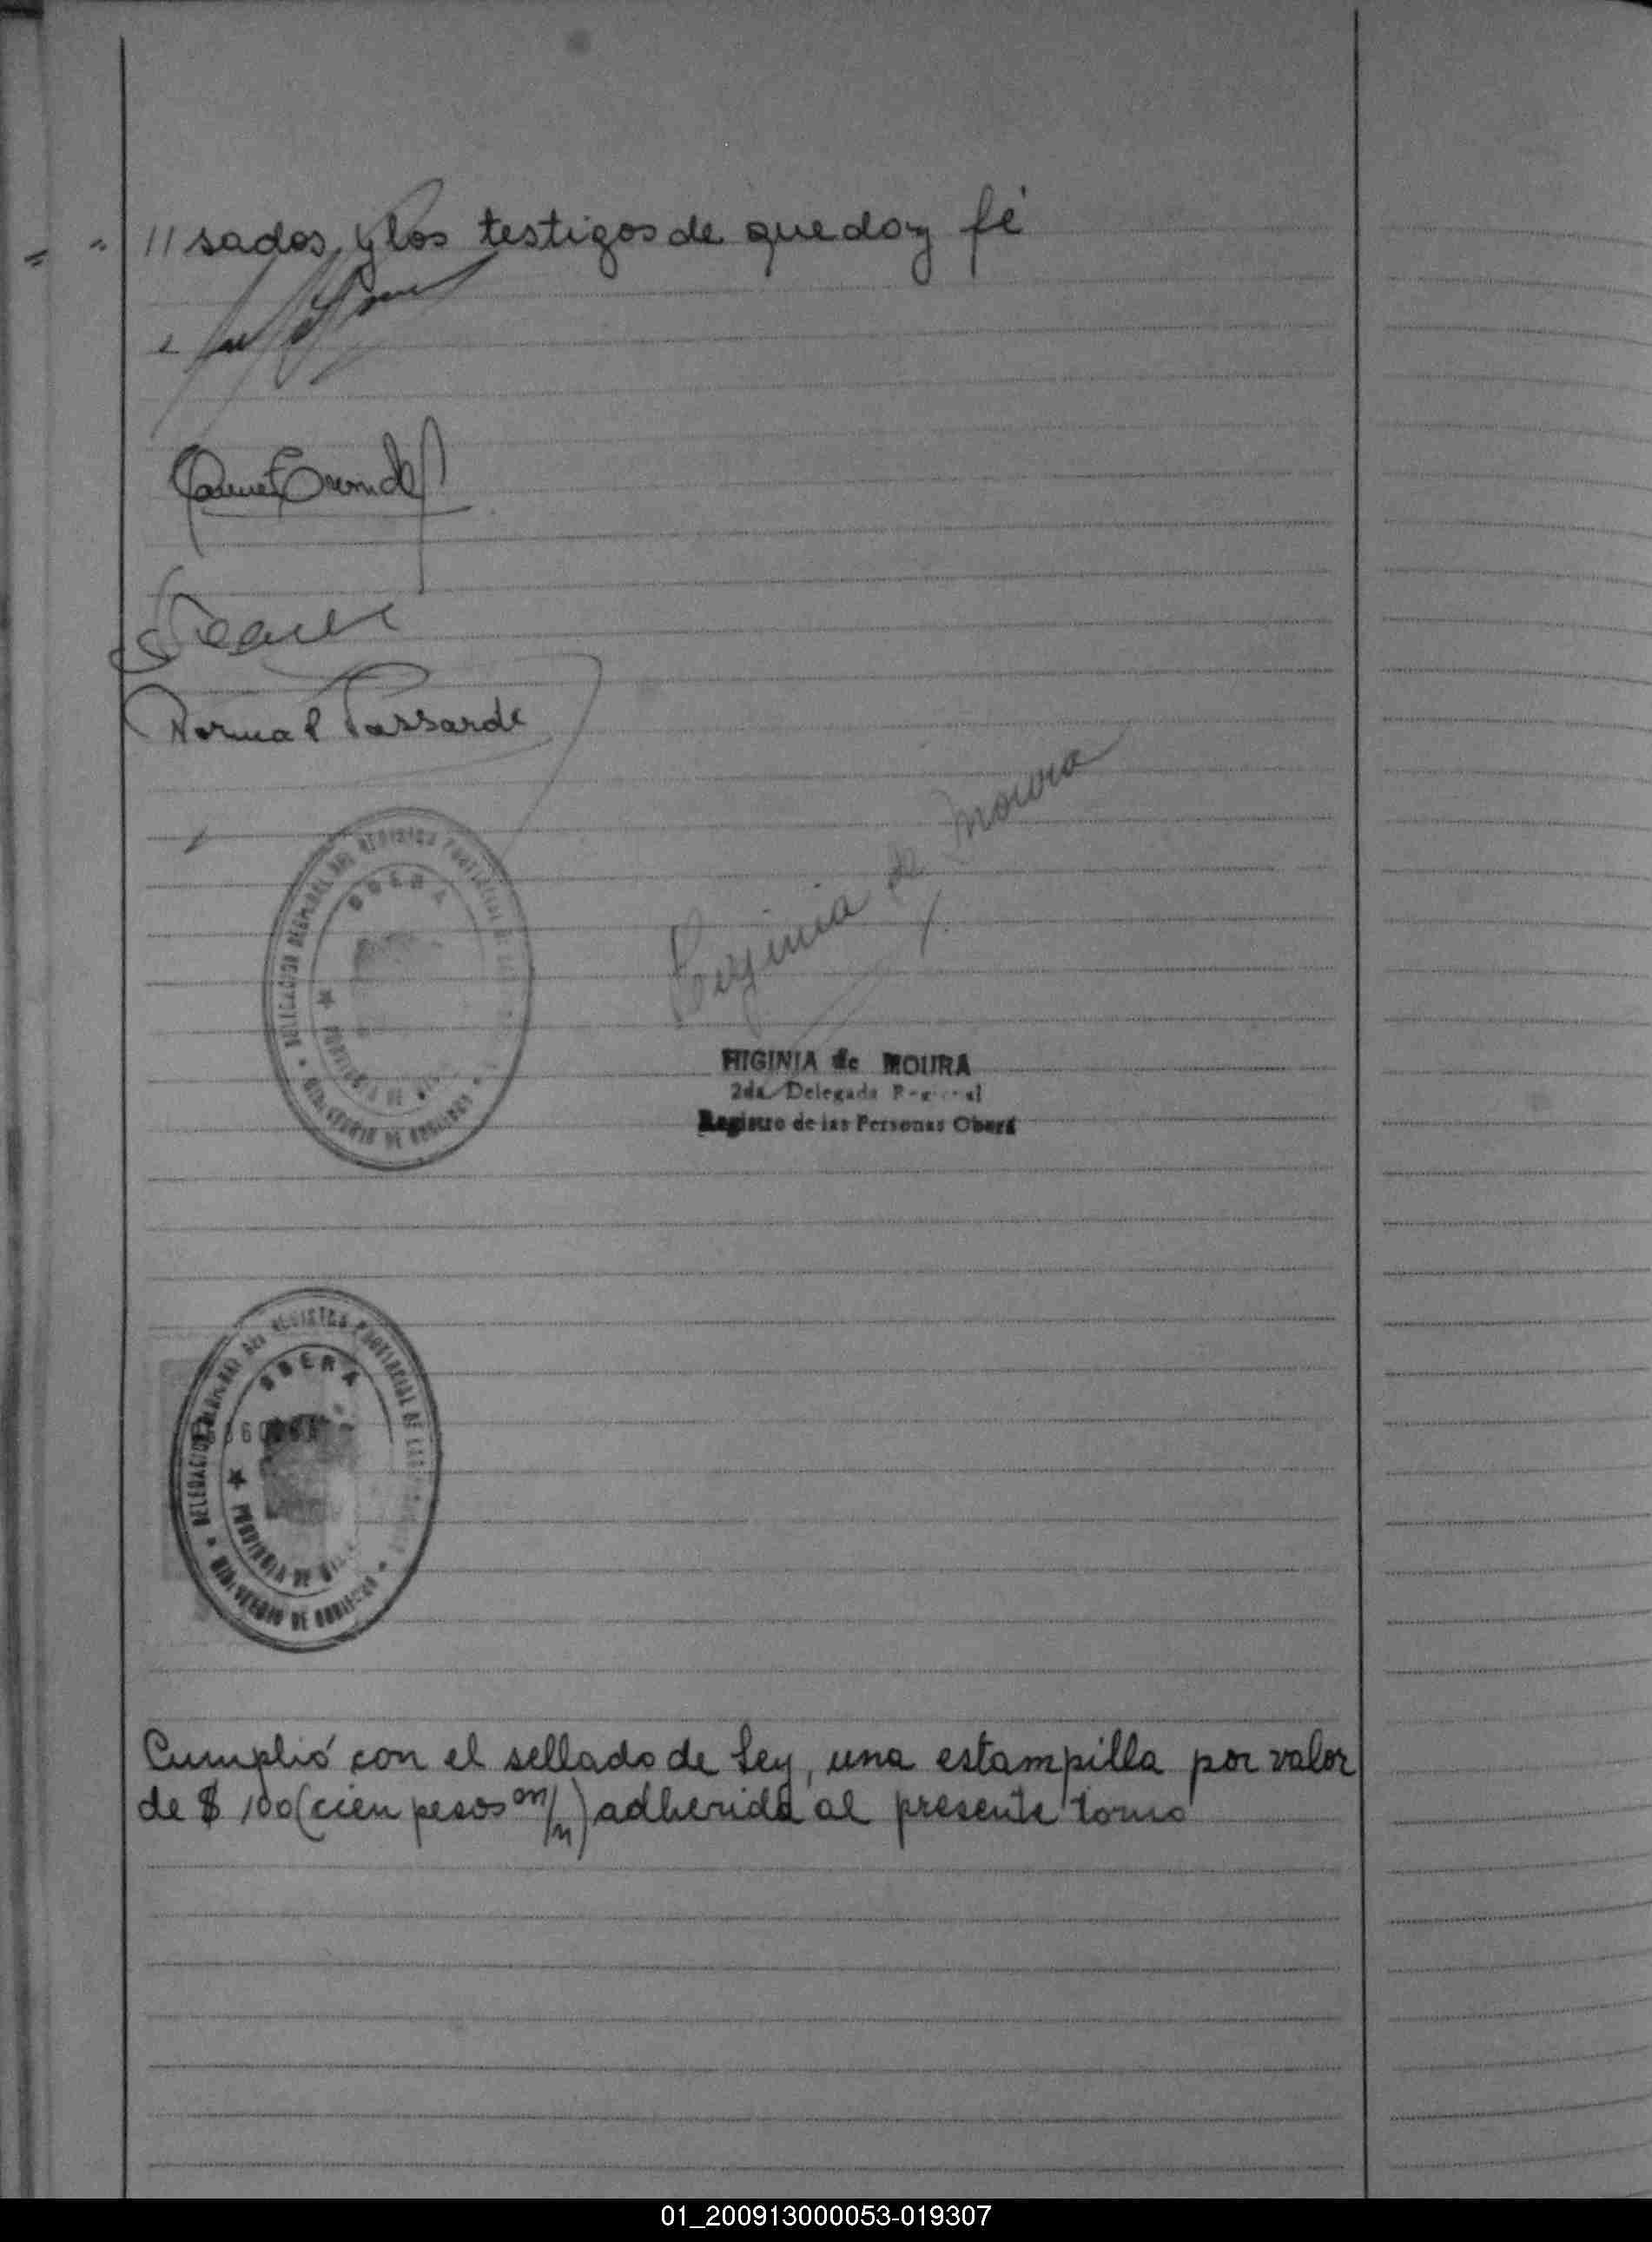 " // sados, y los testigos de que doy fé
Norma P Passarde
DELEGACION REGIONAL DEL REGISTRO PROVINCIAL DE LAS
OBERA
PROVINCIA DE
MINISTERIO DE GOBIERNO
Higinia de Moura
HIGINIA de MOURA
2da. Delegada Regional
Registro de las Personas Oberá
DELEGACION REGIONAL DEL REGISTRO PROVINCIAL DE LAS
OBERA
PROVINCIA DE MIS
MINISTERIO DE GOBIERNO
Cumplió con el sellado de Ley, una estampilla por valor
de $ 100 (cien pesos m/n) adherida al presente tomo
01_200913000053-019307